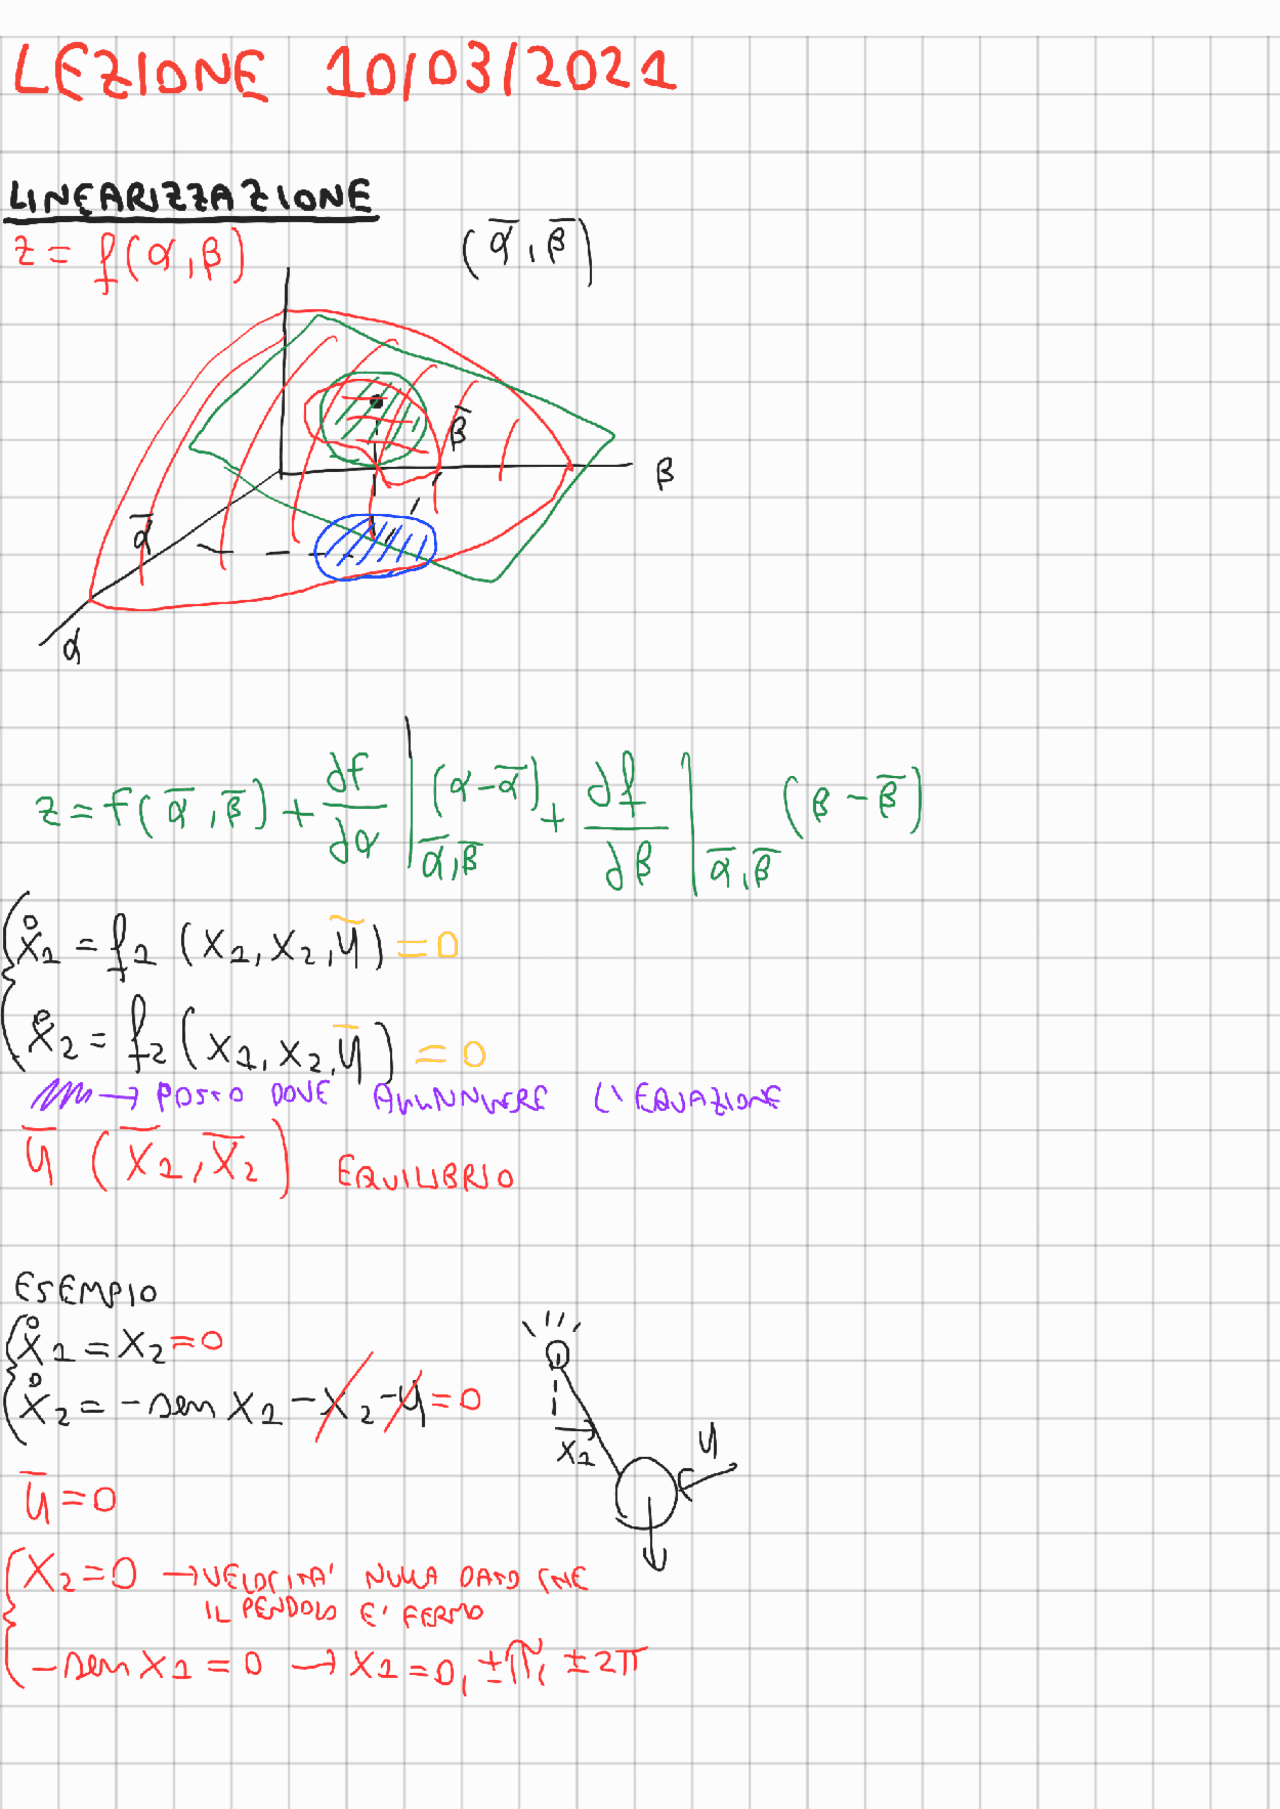 LEZIONE 10/03/2021
LINEARIZZAZIONE
z = f(α,β) (ᾱ,β̄)
β̄
β
ᾱ
α
z = f(ᾱ,β̄) + ∂f/∂α |ᾱ,β̄ (α-ᾱ) + ∂f/∂β |ᾱ,β̄ (β-β̄)
ẋ1 = f1 (x1, x2, ū) = 0
ẋ2 = f2 (x1, x2, ū) = 0
→ POSSO DOVE L'EQUAZIONE
ū (x̄1, x̄2) EQUILIBRIO
ESEMPIO
ẋ1 = x2 = 0
ẋ2 = -sen x1 - x2 - u = 0
x1
u
ū = 0
x2 = 0 → VELOCITA' NULLA DATO CHE
IL PENDOLO E' FERMO
-sen x1 = 0 → x1 = 0, ±π, ±2π